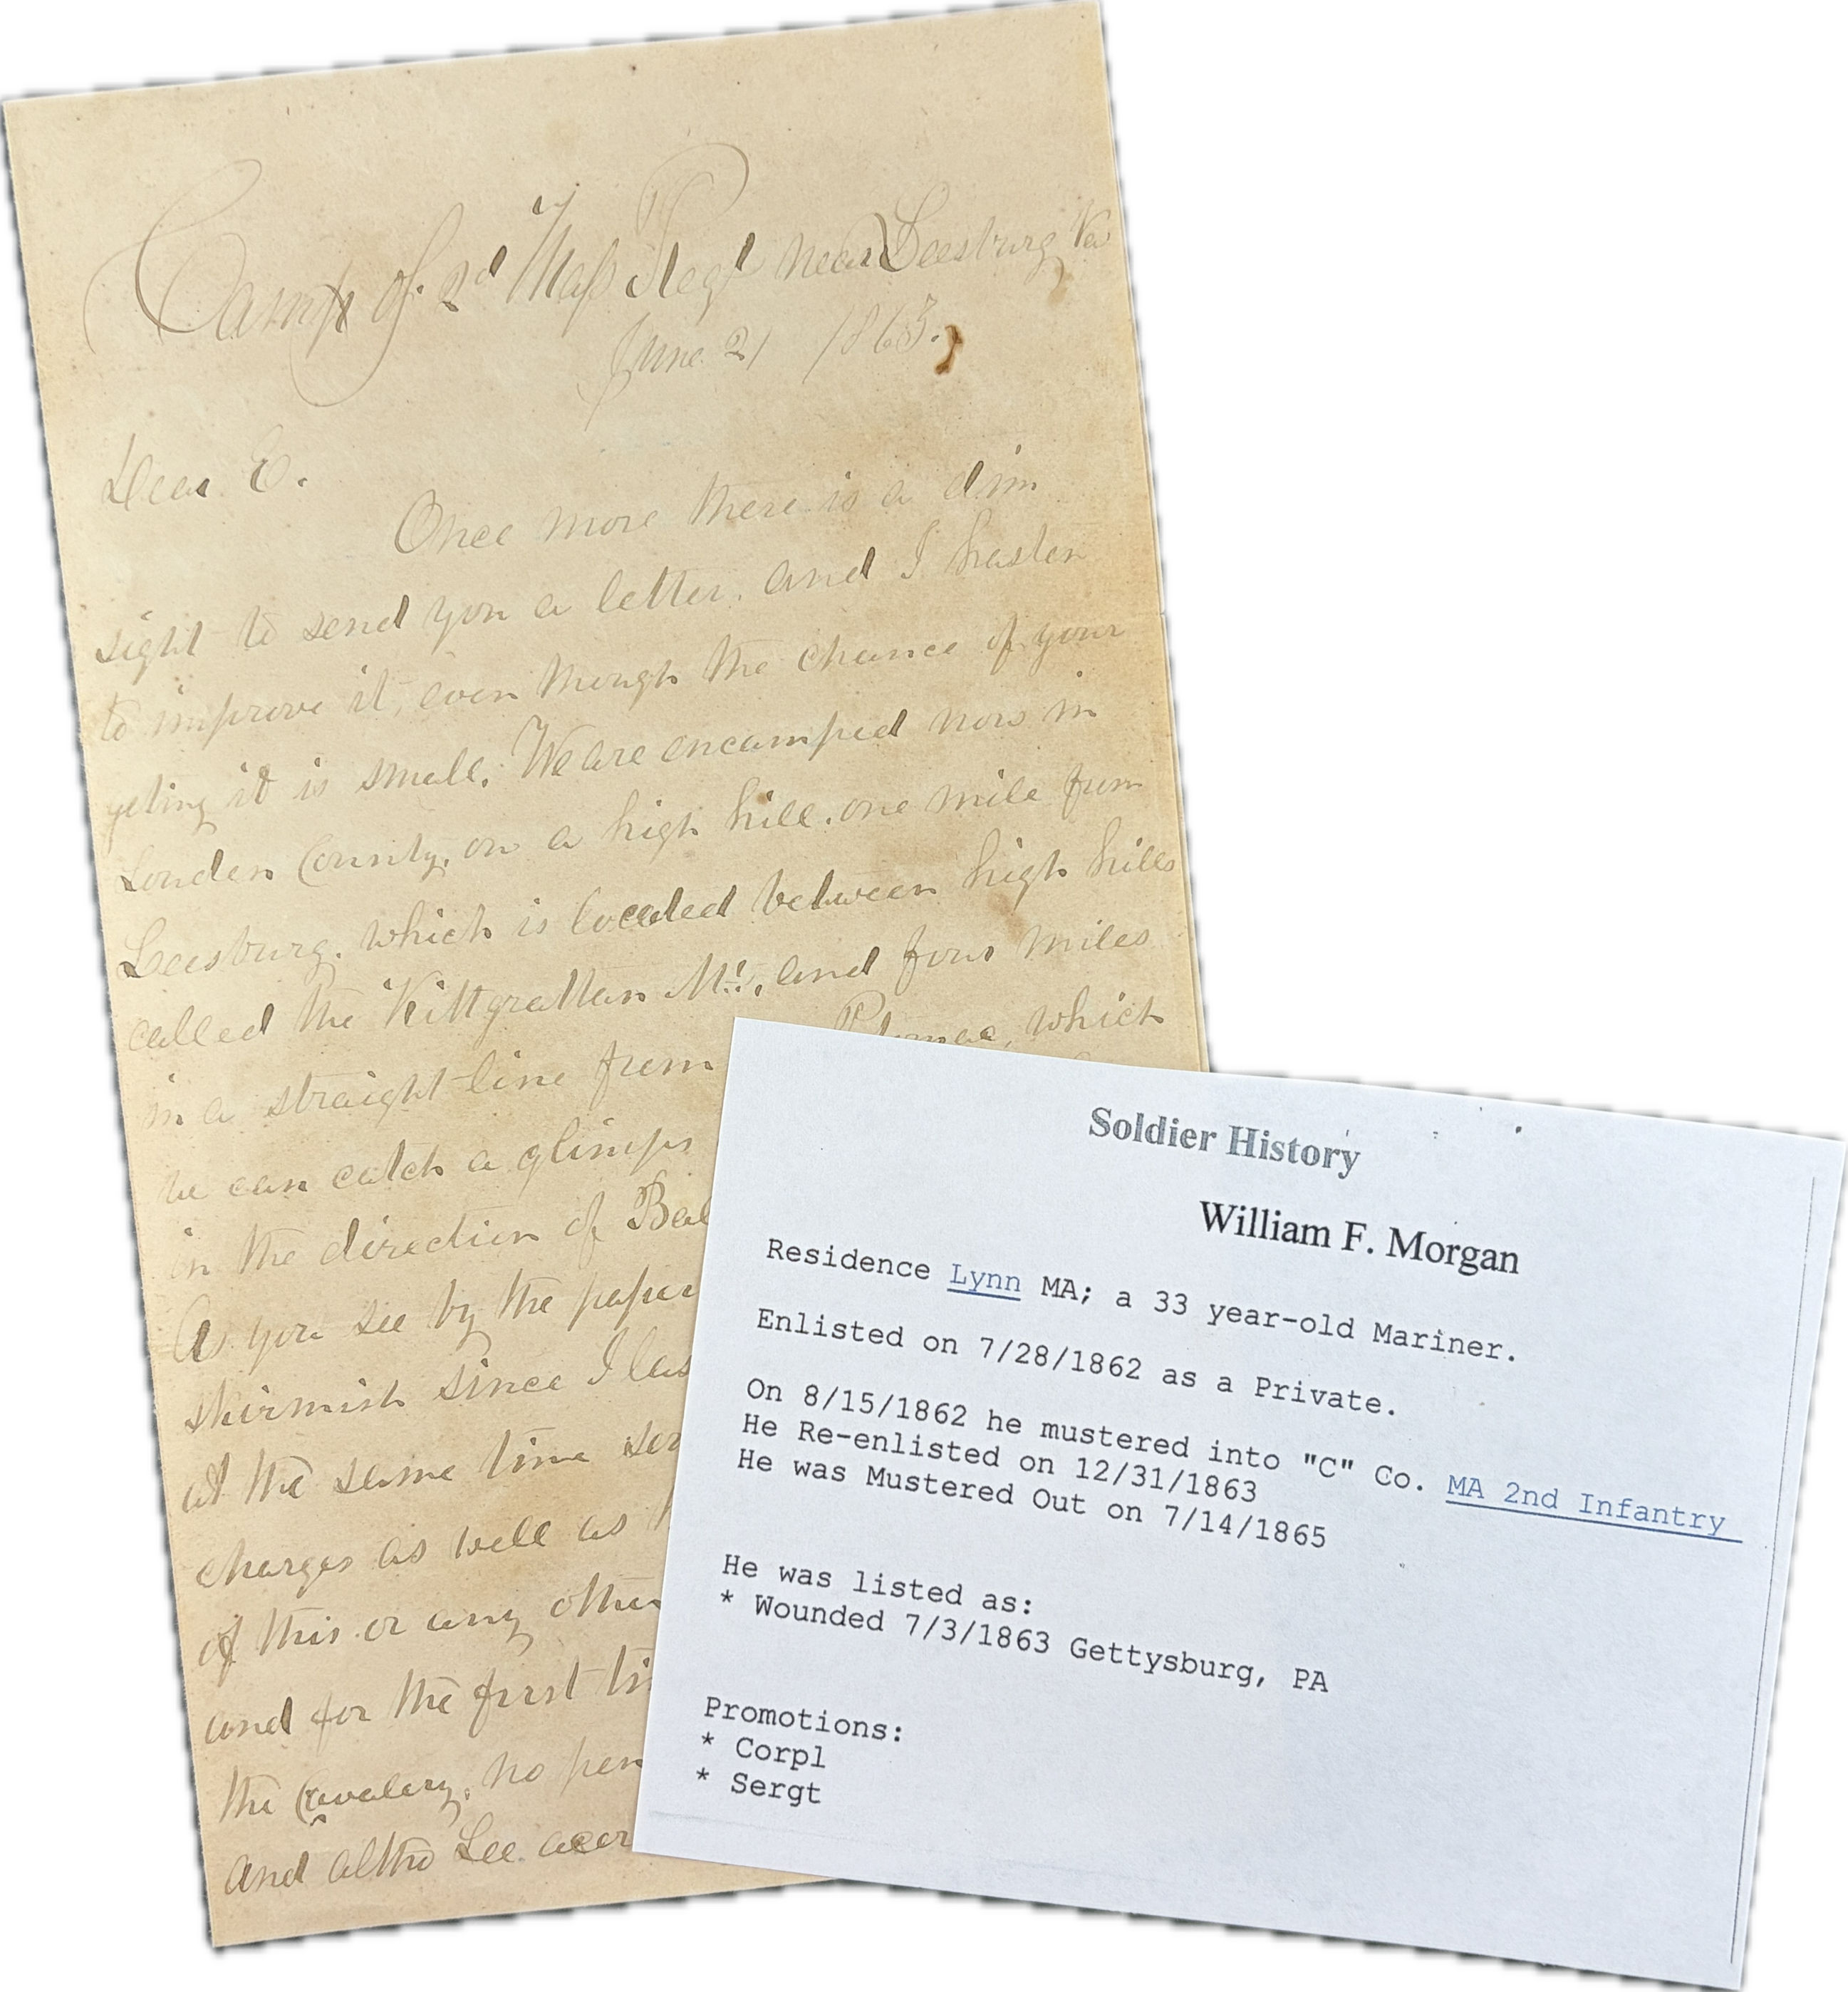 Camp of 2d Mass Regt near Leesburg Va
June 21 1863.
Dear E.
Once more there is a dim
sight to send you a letter, and I hasten
to improve it, even though the chance of your
geting it is small. We are encamped now in
Louden County, on a high hill, one mile from
Leesburg, which is located between high hills
called the Kittgrattan Mts, and four miles
in a straight line from Potomac, which
we can catch a glimps
in the direction of Bal
As you see by the paper
skirmish since I las
at the same time ser
charges as well as
of this or any other
and for the first ti
the Cavalery, no pen
and altho Lee accor
Soldier History
William F. Morgan
Residence Lynn MA; a 33 year-old Mariner.
Enlisted on 7/28/1862 as a Private.
On 8/15/1862 he mustered into "C" Co. MA 2nd Infantry
He Re-enlisted on 12/31/1863
He was Mustered Out on 7/14/1865
He was listed as:
* Wounded 7/3/1863 Gettysburg, PA
Promotions:
* Corpl
* Sergt